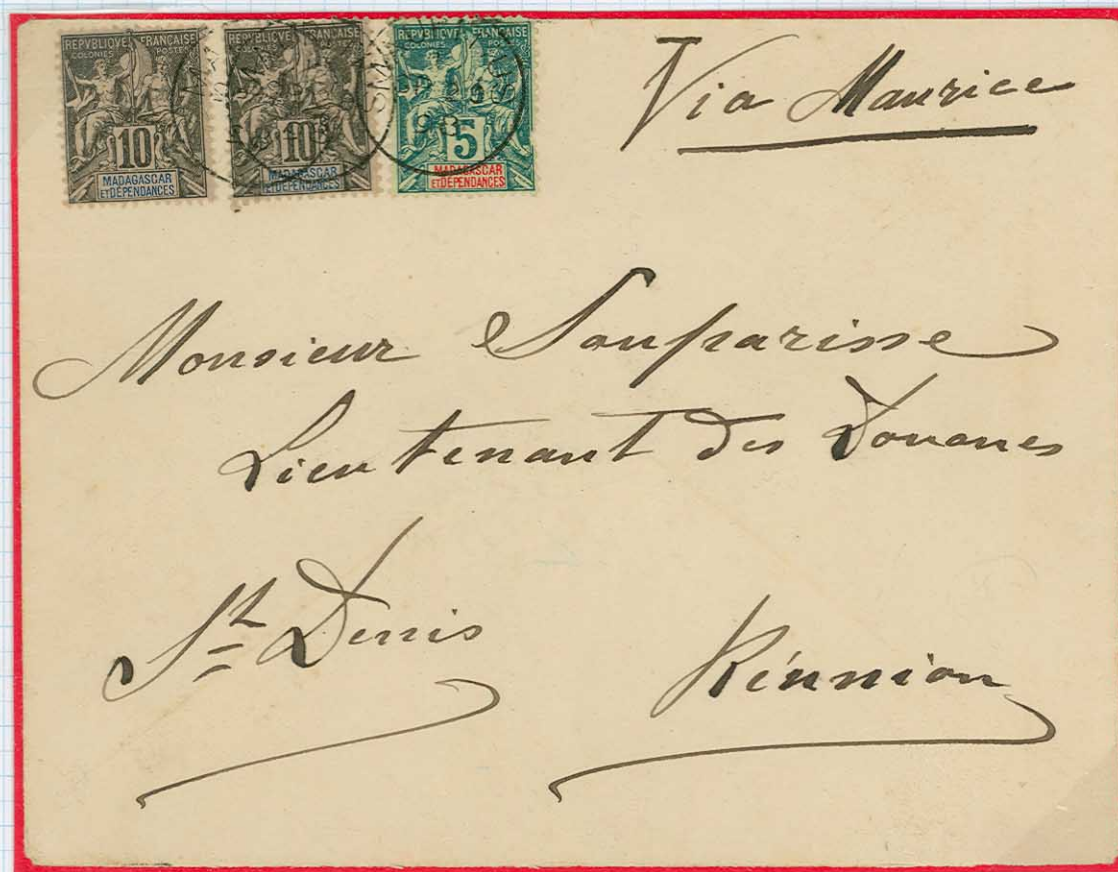 REPVBLIQVE FRANÇAISE
COLONIES POSTES
10
MADAGASCAR
ET DÉPENDANCES
REPVBLIQVE FRANÇAISE
COLONIES POSTES
10
MADAGASCAR
ET DÉPENDANCES
REPVBLIQVE FRANÇAISE
COLONIES POSTES
5
MADAGASCAR
ET DÉPENDANCES
Via Maurice
Monsieur Souparisse
Lieutenant des Douanes
St Denis
Réunion